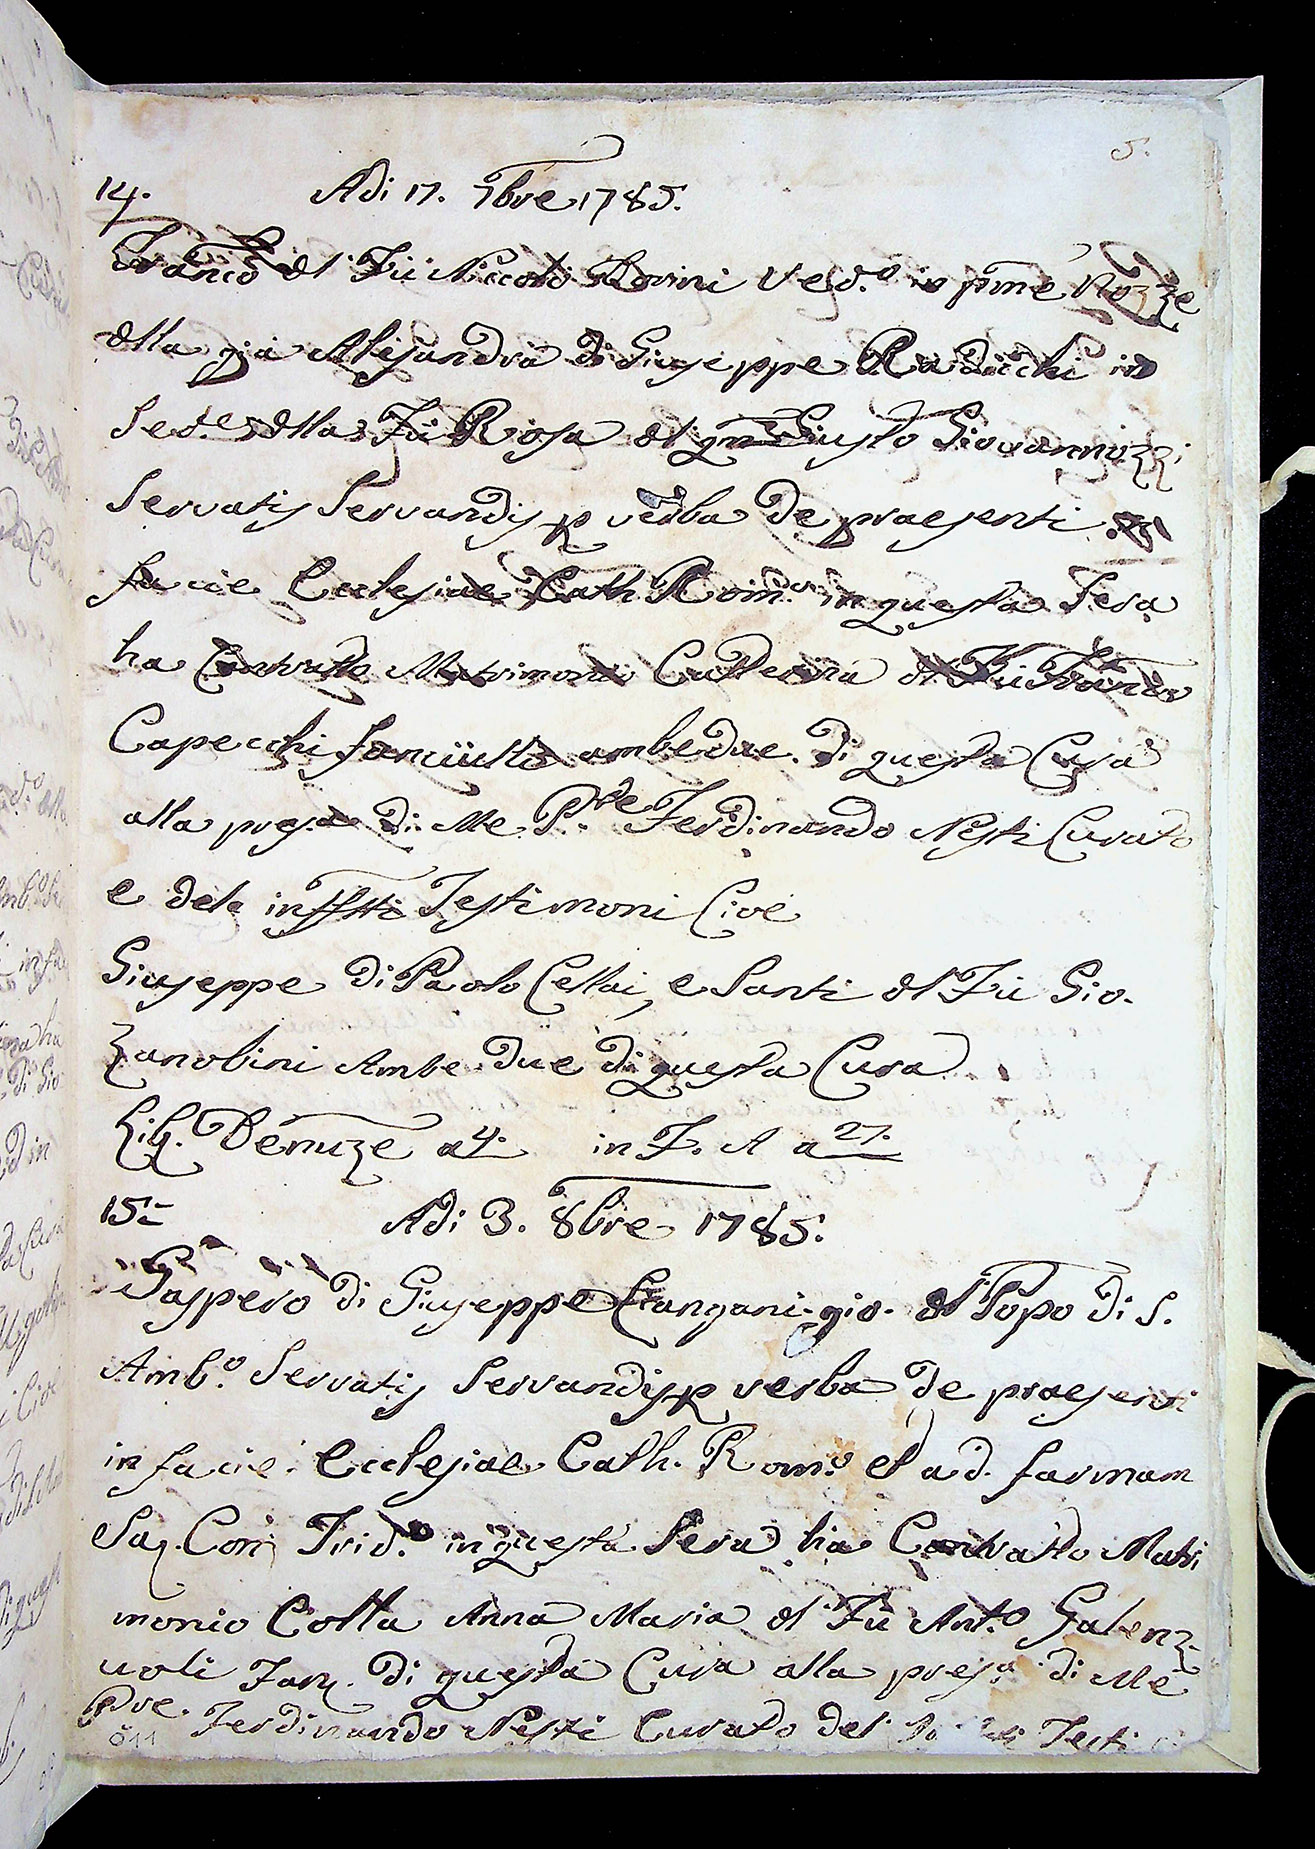 5.
14. Adi 17. 7bre 1785.
Franco dl Fù Niccolò Rovini Ved.º in pme Nozze
dlla già Alesandra di Giuseppe Radicchi in
Sed.e dlla Fù Rosa dl qm Giusto Giovannozzi
Servatis Servandis p verba de praesenti in
facie Ecclesiae Cath. Rom.e in questa Sera
ha Contratto Matrimonio Catterina dl Fù Franco
Capecchi fanciulla ambedue di questa Cura
alla pres.a di Me P.re Ferdinando Nesti Curato
e dele infstti Testimoni Cioe
Giuseppe di Paolo Cellai, e Santi dl Fù Gio.
Zanobini Ambe due di questa Cura
Lib. Denuze a 4. in F. A a 27.
15. Adi 3. 8bre 1785.
Gaspero di Giuseppe gio. dl Popo di S.
Amb.º Servatis Servandis p verba de praesenti
in facie Ecclesiae Cath. Rom.e et ad. formam
Sac. Con Trid.º in questa Sera ha Contratto Matri
monio Colla Anna Maria dl Fù Ant.º Galenz
uoli Fan. di questa Cura alla pres.a di Me
Pre. Ferdinando Nesti Curato del Testi